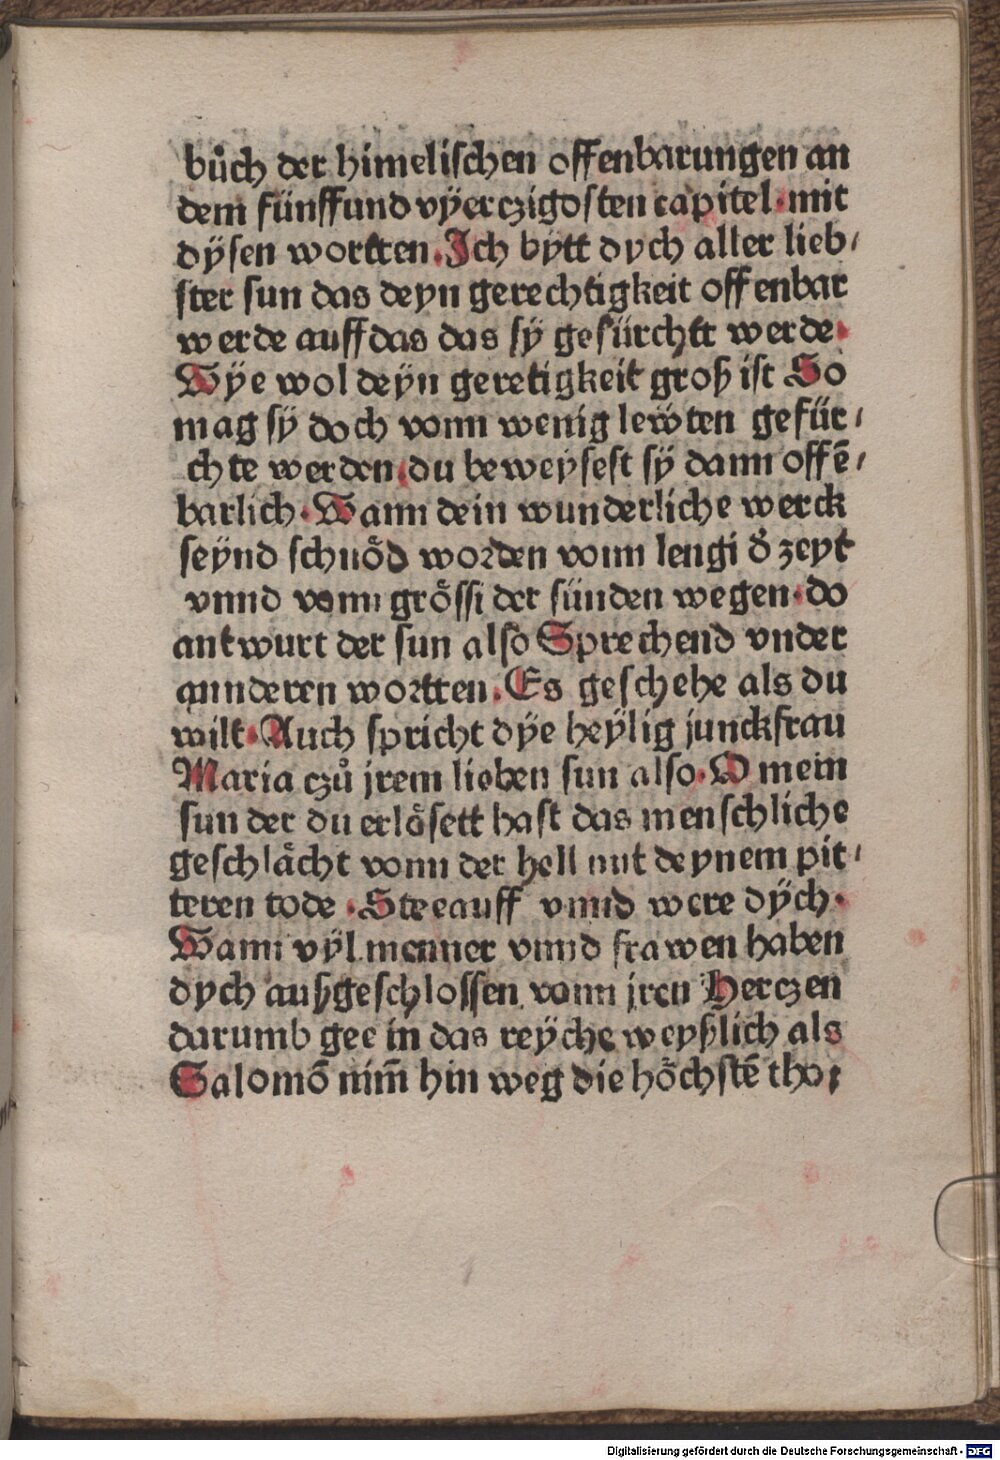 bůch der himelischen offenbarungen an
dem fünffund vÿerczigosten capitel. mit
dÿsen wortten. Ich bytt dych aller lieb⸗
ster sun das deyn gerechtigkeit offenbar
werde auff das das sÿ gefürchtt werde.
Wÿe wol deÿn geretigkeit groß ist So
mag sÿ doch vonn wenig lewten gefür⸗
chte werden. du beweysest sÿ dann offē⸗
barlich. Wann dein wunderliche werck
seynd schnöd worden vonn lengi d̕ zeyt
vnnd vonn grössi der sünden wegen. do
antwurt der sun also Sprechend vnder
annderen wortten. Es geschehe als du
wilt. Auch spricht dÿe heÿlig junckfrau
Maria czů jrem lieben sun also. O mein
sun der du erlösett hast das menschliche
geschlächt vonn der hell mit deynem pit⸗
teren tode. Stee auff vnnd were dÿch.
Wann vÿl menner vnnd frawen haben
dych außgeschlossen vonn jren Herczen
darumb gee in das reÿche weyßlich als
Salomō nim̄ hin weg die höchstē tho⸗
Digitalisierung gefördert durch die Deutsche Forschungsgemeinschaft - DFG